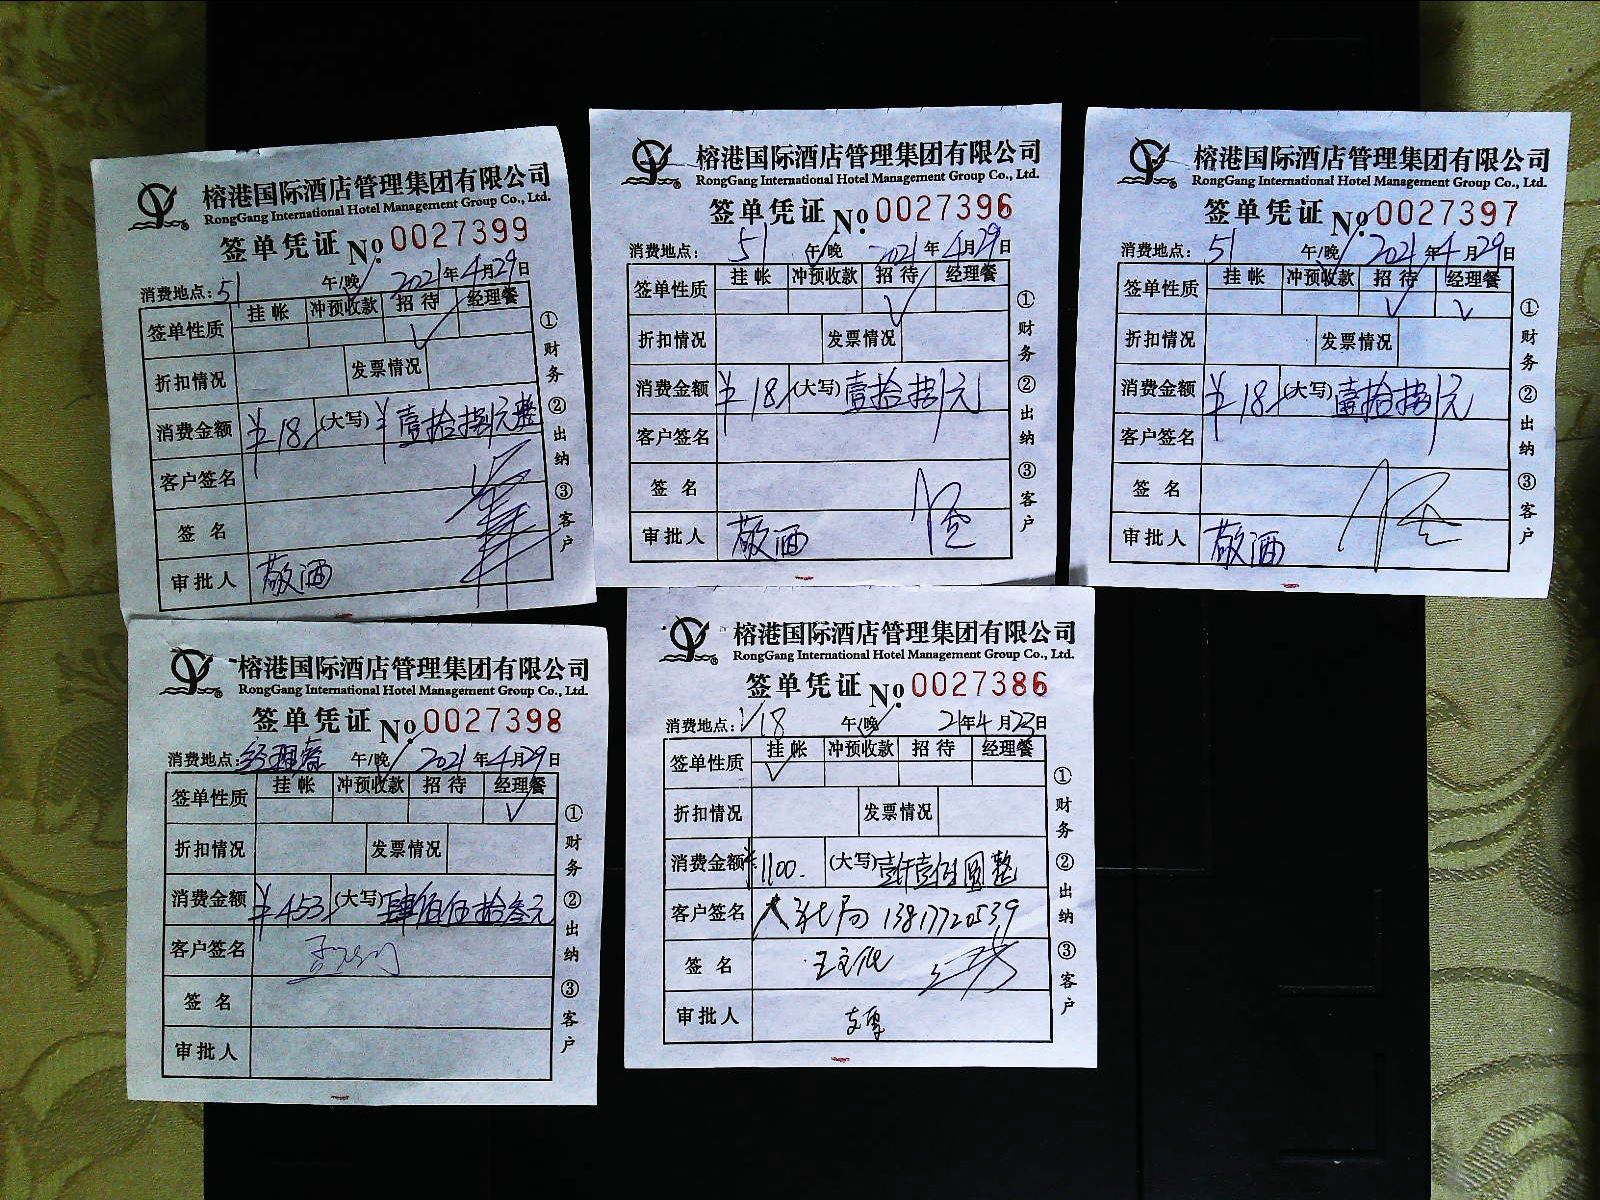 榕港国际酒店管理集团有限公司
RongGang International Hotel Management Group Co., Ltd.
签单凭证 No. 0027399
消费地点: 51 午/晚 2021年4月29日
签单性质 挂帐 冲预收款 招待 经理餐
折扣情况 发票情况
消费金额 ¥18 (大写) ¥壹拾捌元整
客户签名
签名
审批人 敬酒
①财务 ②出纳 ③客户
榕港国际酒店管理集团有限公司
RongGang International Hotel Management Group Co., Ltd.
签单凭证 No. 0027396
消费地点: 51 午/晚 2021年4月29日
签单性质 挂帐 冲预收款 招待 经理餐
折扣情况 发票情况
消费金额 ¥18 (大写) 壹拾捌元
客户签名
签名
审批人 敬酒
①财务 ②出纳 ③客户
榕港国际酒店管理集团有限公司
RongGang International Hotel Management Group Co., Ltd.
签单凭证 No. 0027397
消费地点: 51 午/晚 2021年4月29日
签单性质 挂帐 冲预收款 招待 经理餐
折扣情况 发票情况
消费金额 ¥18 (大写) 壹拾捌元
客户签名
签名
审批人 敬酒
①财务 ②出纳 ③客户
榕港国际酒店管理集团有限公司
RongGang International Hotel Management Group Co., Ltd.
签单凭证 No. 0027398
消费地点: 经理餐 午/晚 2021年4月29日
签单性质 挂帐 冲预收款 招待 经理餐
折扣情况 发票情况
消费金额 ¥453 (大写) 肆佰伍拾叁元
客户签名
签名
审批人
①财务 ②出纳 ③客户
榕港国际酒店管理集团有限公司
RongGang International Hotel Management Group Co., Ltd.
签单凭证 No. 0027386
消费地点: V18 午/晚 21年4月23日
签单性质 挂帐 冲预收款 招待 经理餐
折扣情况 发票情况
消费金额 ¥1100. (大写) 壹仟壹佰圆整
客户签名 人社局 13817720539
签名
审批人
①财务 ②出纳 ③客户